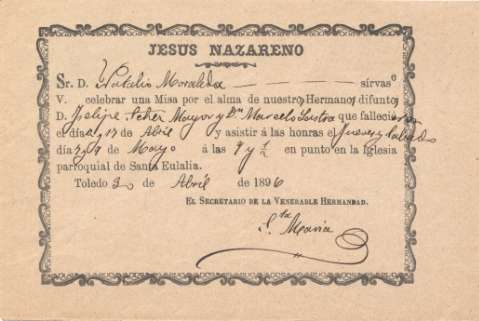 JESUS NAZARENO
Sr. D. Natalio Moraleda sírvase
V. celebrar una Misa por el alma de nuestros Hermanos difuntos
D. Felipe Mayor y Dn Marcelo Lastra que fallecieron
el día 2 y 17 de Abril y asistir á las honras el Jueves y Sabado
día 7 y de Mayo á las 9 y ½ en punto en la Iglesia
parroquial de Santa Eulalia.
Toledo de Abril de 1896
EL SECRETARIO DE LA VENERABLE HERMANDAD.
Sta Maria